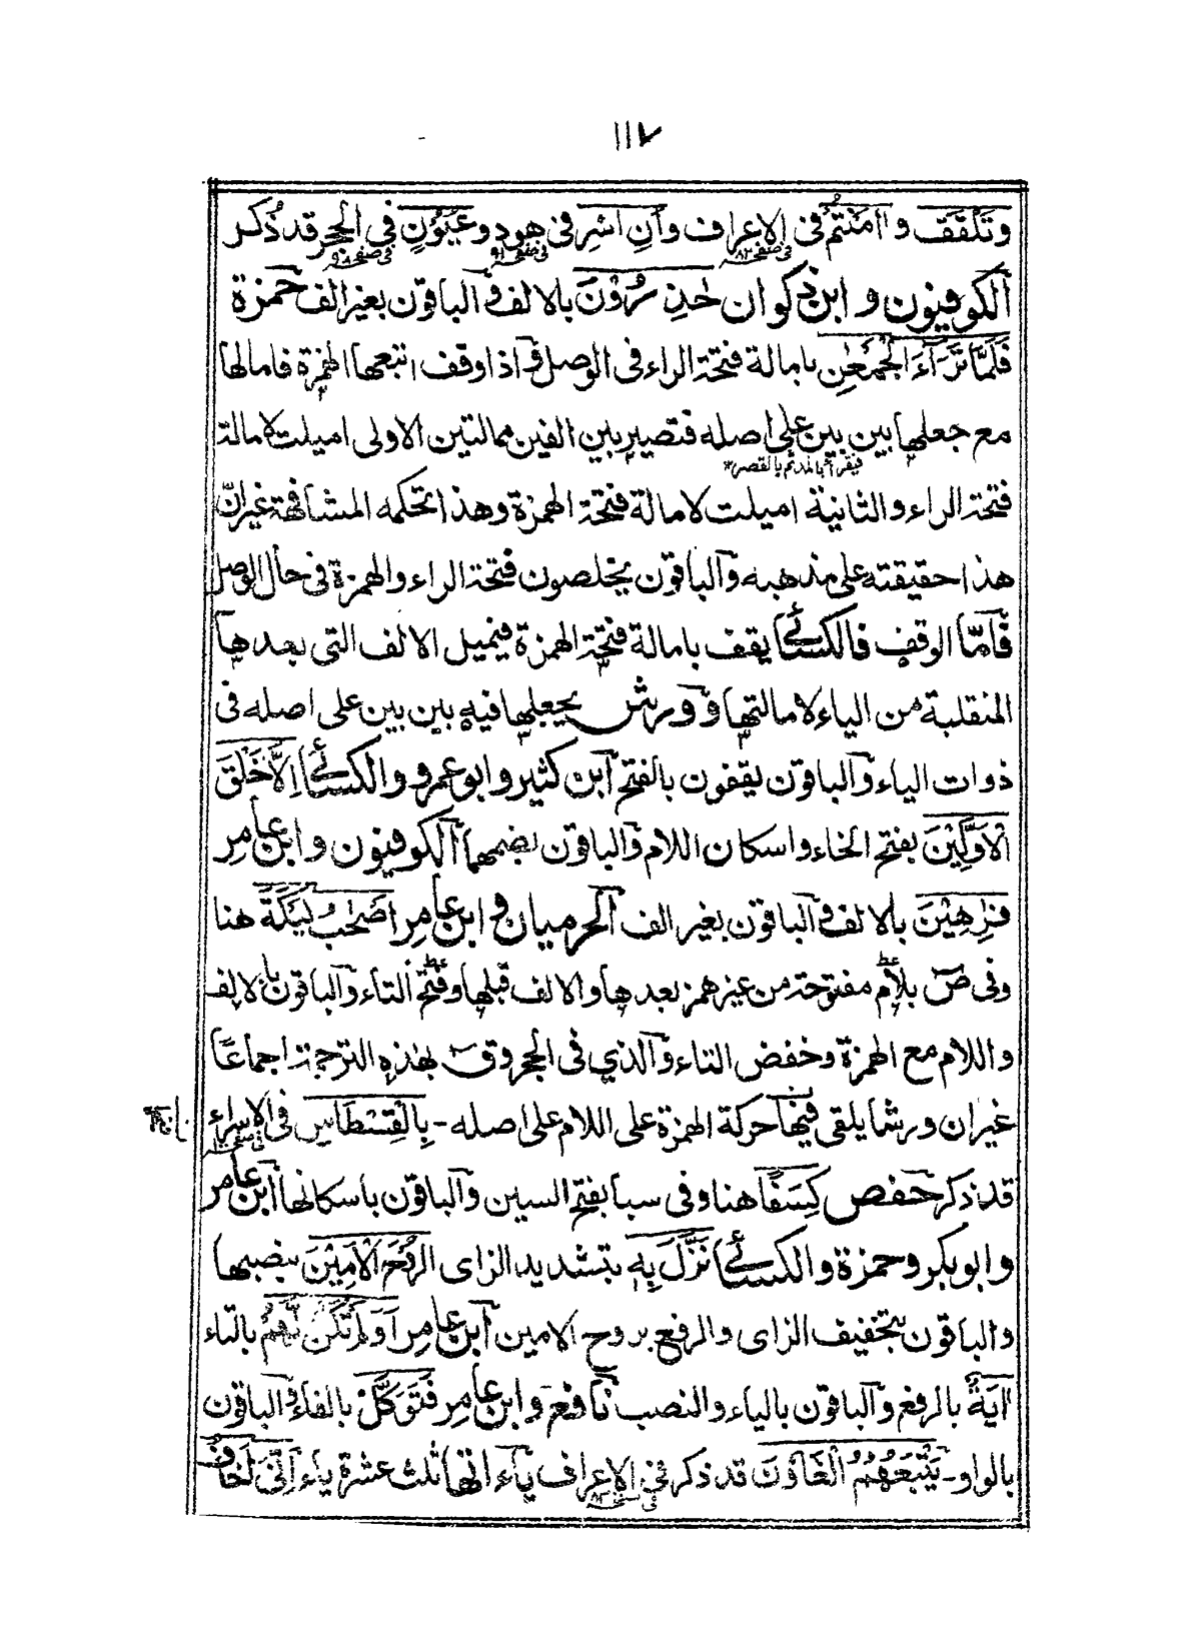 ١١٧
وَتَلَقَّفُ و ءامَنْتُمْ فى الاعراف وأَنِ اسْرِ فى هود وعُيُوْنٍ فى الحجر قد ذُكر
فى صفحه ٨٢ فى صفحه ٩١ فى صفحه ٩٨
الكوفيون و ابن ذكوان حٰذِرُوْنَ بالالف والباقون بغير الف حمزة
فَلَمَّا تَرَآءَ الْجَمْعٰنِ بامالة فتحة الراء فى الوصل واذا وقف اتبعها الهمزة فامالها
مع جعلها بين بين على اصله فتصير بين الفين ممالتين الاولى اميلت لامالة
فيقرأ بالمد ثم بالقصر
فتحة الراء والثانية اميلت لامالة فتحة الهمزة وهذا تحكمه المشافهة غير انّ
هذا حقيقته على مذهبه والباقون يخلصون فتحة الراء والهمزة فى حال الوصل
فامّا الوقف فالكسائى يقف بامالة فتحة الهمزة فيميل الالف التى بعدها
المنقلبة من الياء لامالتها و ورش يجعلها فيه بين بين على اصله فى
ذوات الياء والباقون يقفون بالفتح ابن كثير وابو عمرو والكسائى اِلَّا خَلْقُ
الْاَوَّلِيْنَ بفتح الخاء واسكان اللام والباقون بضمهما الكوفيون وابن عامر
فٰرِهِيْنَ بالالف والباقون بغير الف الحرميان و ابن عامر اَصْحٰبُ لَيْكَةَ هنا
وفى صٓ بلام مفتوحة من غير همز بعدها والالف قبلها وفتح التاء والباقون بالالف
واللام مع الهمزة وخفض التاء والذي فى الحجر وقٓ بهذه الترجمة اجماعًا
غير ان ورشا يلقى فيها حركة الهمزة على اللام على اصله - بِالْقِسْطَاسِ فى الاسراء
قد ذكر حفص كِسَفًا هنا وفى سبا بفتح السين والباقون باسكانها ابن عامر
وابو بكر وحمزة والكسائى نَزَّلَ بِهِ بتشديد الزاى الرُّوْحَ الْاَمِيْنَ بنصبهما
والباقون بتخفيف الزاى والرفع بروح الامين ابن عامر اَوَلَمْ تَكُنْ لَّهُمْ بالتاء
اٰيَةٌ بالرفع والباقون بالياء والنصب نافع وابن عامر فَتَوَكَّلْ بالفاء والباقون
بالواو - يَتَّبِعُهُمُ الْغَاوٗنَ قد ذكر فى الاعراف ياءاتها ثلث عشرة ياء اِنِّىَ اَخَافُ